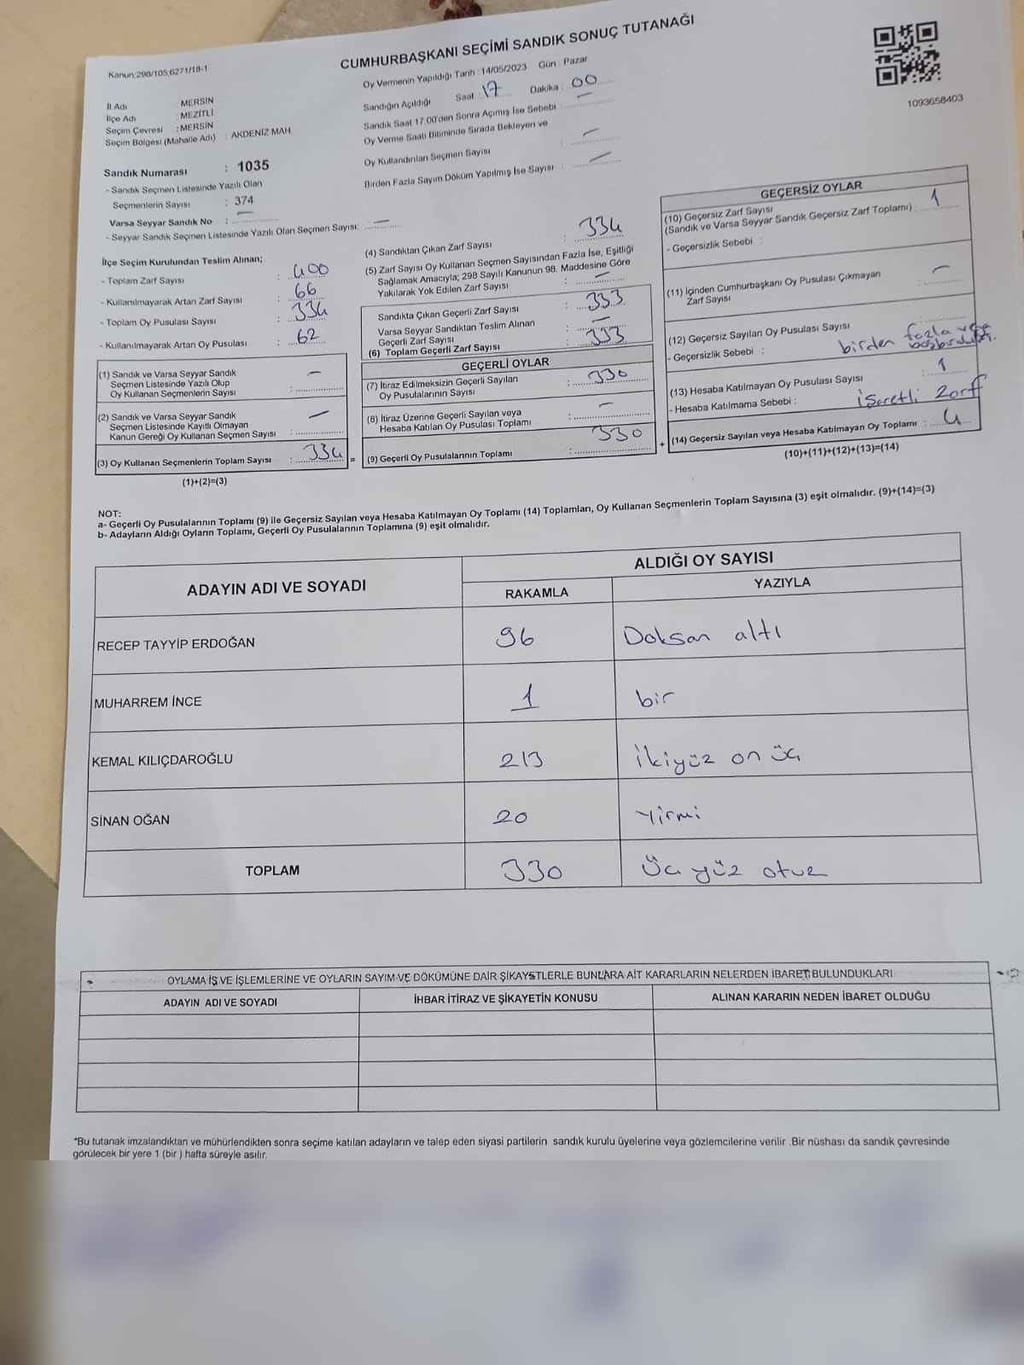 CUMHURBAŞKANI SEÇİMİ SANDIK SONUÇ TUTANAĞI
Kanun:298/105;6271/18-1
1093658403
Oy Vermenin Yapıldığı Tarih :14/05/2023 Gün : Pazar
Sandığın Açıldığı Saat : 17 Dakika : 00
Sandık Saat 17.00'den Sonra Açımış İse Sebebi : —
Oy Verme Saati Bitiminde Sırada Bekleyen ve
Oy Kullandırılan Seçmen Sayısı : —
Birden Fazla Sayım Döküm Yapılmış İse Sayısı : —
İl Adı : MERSİN
İlçe Adı : MEZİTLİ
Seçim Çevresi : MERSİN
Seçim Bölgesi (Mahalle Adı) : AKDENİZ MAH.
Sandık Numarası : 1035
- Sandık Seçmen Listesinde Yazılı Olan
Seçmenlerin Sayısı : 374
Varsa Seyyar Sandık No : —
- Seyyar Sandık Seçmen Listesinde Yazılı Olan Seçmen Sayısı: —
İlçe Seçim Kurulundan Teslim Alınan;
- Toplam Zarf Sayısı : 400
- Kullanılmayarak Artan Zarf Sayısı : 66
- Toplam Oy Pusulası Sayısı : 334
- Kullanılmayarak Artan Oy Pusulası : 62
(1) Sandık ve Varsa Seyyar Sandık
Seçmen Listesinde Yazılı Olup
Oy Kullanan Seçmenlerin Sayısı : —
(2) Sandık ve Varsa Seyyar Sandık
Seçmen Listesinde Kayıtlı Olmayan
Kanun Gereği Oy Kullanan Seçmen Sayısı : —
(3) Oy Kullanan Seçmenlerin Toplam Sayısı : 334 =
(1)+(2)=(3)
(4) Sandıktan Çıkan Zarf Sayısı : 334
(5) Zarf Sayısı Oy Kullanan Seçmen Sayısından Fazla İse, Eşitliği
Sağlamak Amacıyla; 298 Sayılı Kanunun 98. Maddesine Göre
Yakılarak Yok Edilen Zarf Sayısı : —
Sandıkta Çıkan Geçerli Zarf Sayısı : 333
Varsa Seyyar Sandıktan Teslim Alınan
Geçerli Zarf Sayısı : —
(6) Toplam Geçerli Zarf Sayısı : 333
GEÇERLİ OYLAR
(7) İtiraz Edilmeksizin Geçerli Sayılan
Oy Pusulalarının Sayısı : 330
(8) İtiraz Üzerine Geçerli Sayılan veya
Hesaba Katılan Oy Pusulası Toplamı : —
(9) Geçerli Oy Pusulalarının Toplamı : 330 +
GEÇERSİZ OYLAR
(10) Geçersiz Zarf Sayısı
(Sandık ve Varsa Seyyar Sandık Geçersiz Zarf Toplamı) : 1
- Geçersizlik Sebebi :
(11) İçinden Cumhurbaşkanı Oy Pusulası Çıkmayan
Zarf Sayısı : —
(12) Geçersiz Sayılan Oy Pusulası Sayısı :
- Geçersizlik Sebebi : birden fazla
(13) Hesaba Katılmayan Oy Pusulası Sayısı : 1
- Hesaba Katılmama Sebebi : işaretli Zarf
(14) Geçersiz Sayılan veya Hesaba Katılmayan Oy Toplamı : 4
(10)+(11)+(12)+(13)=(14)
NOT:
a- Geçerli Oy Pusulalarının Toplamı (9) ile Geçersiz Sayılan veya Hesaba Katılmayan Oy Toplamı (14) Toplamları, Oy Kullanan Seçmenlerin Toplam Sayısına (3) eşit olmalıdır. (9)+(14)=(3)
b- Adayların Aldığı Oyların Toplamı, Geçerli Oy Pusulalarının Toplamına (9) eşit olmalıdır.
ADAYIN ADI VE SOYADI
ALDIĞI OY SAYISI
RAKAMLA YAZIYLA
RECEP TAYYİP ERDOĞAN 96 Doksan altı
MUHARREM İNCE 1 bir
KEMAL KILIÇDAROĞLU 213 ikiyüz on üç
SİNAN OĞAN 20 Yirmi
TOPLAM 330 üç yüz otuz
OYLAMA İŞ VE İŞLEMLERİNE VE OYLARIN SAYIM VE DÖKÜMÜNE DAİR ŞİKAYETLERLE BUNLARA AİT KARARLARIN NELERDEN İBARET BULUNDUKLARI
ADAYIN ADI VE SOYADI İHBAR İTİRAZ VE ŞİKAYETİN KONUSU ALINAN KARARIN NEDEN İBARET OLDUĞU
*Bu tutanak imzalandıktan ve mühürlendikten sonra seçime katılan adayların ve talep eden siyasi partilerin sandık kurulu üyelerine veya gözlemcilerine verilir .Bir nüshası da sandık çevresinde
görülecek bir yere 1 (bir ) hafta süreyle asılır.